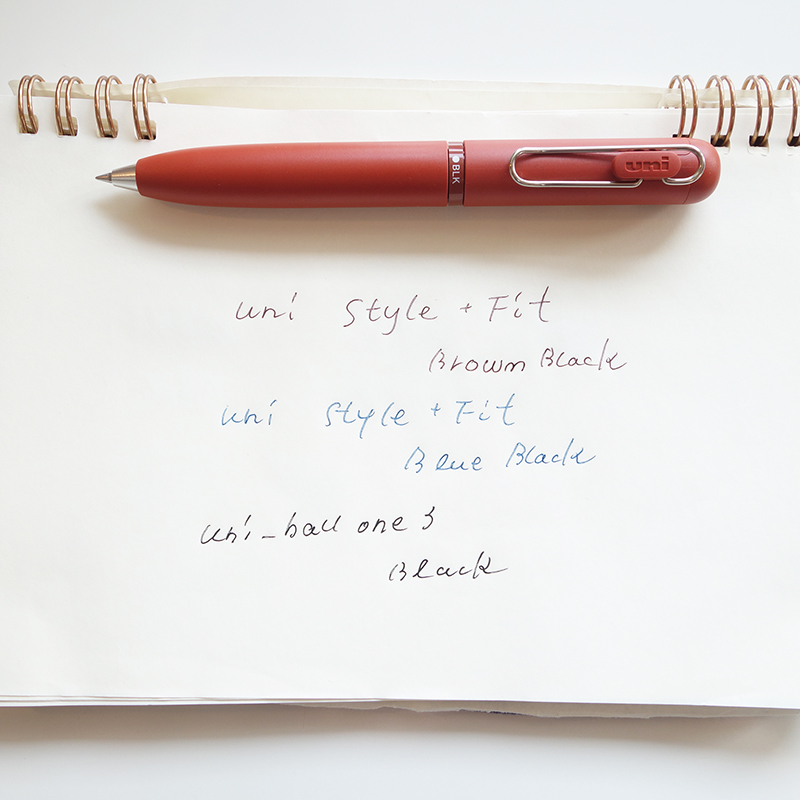 BLK
uni
uni Style + Fit
Brown Black
uni Style + Fit
Blue Black
uni-ball one 3
Black